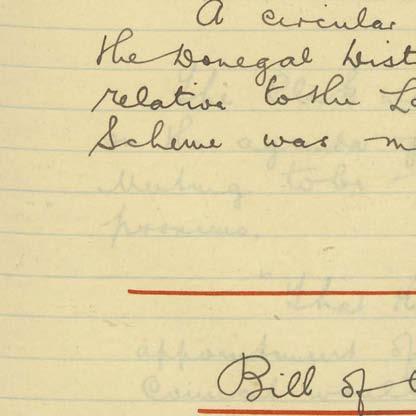 A circular
the Donegal Dist
relative to the L
Scheme was m
Bill of